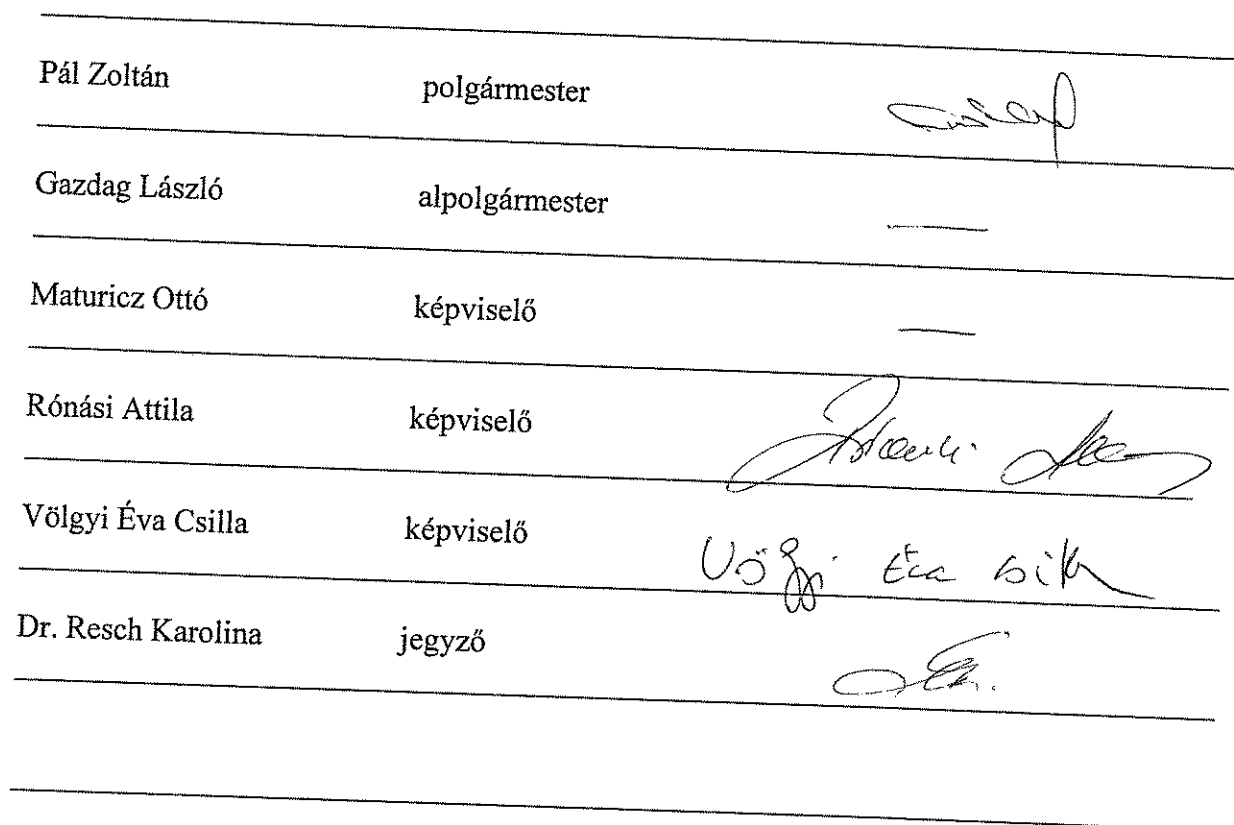 Pál Zoltán polgármester
Gazdag László alpolgármester
Maturicz Ottó képviselő
Rónási Attila képviselő
Völgyi Éva Csilla képviselő Völgyi Éva Csilla
Dr. Resch Karolina jegyző